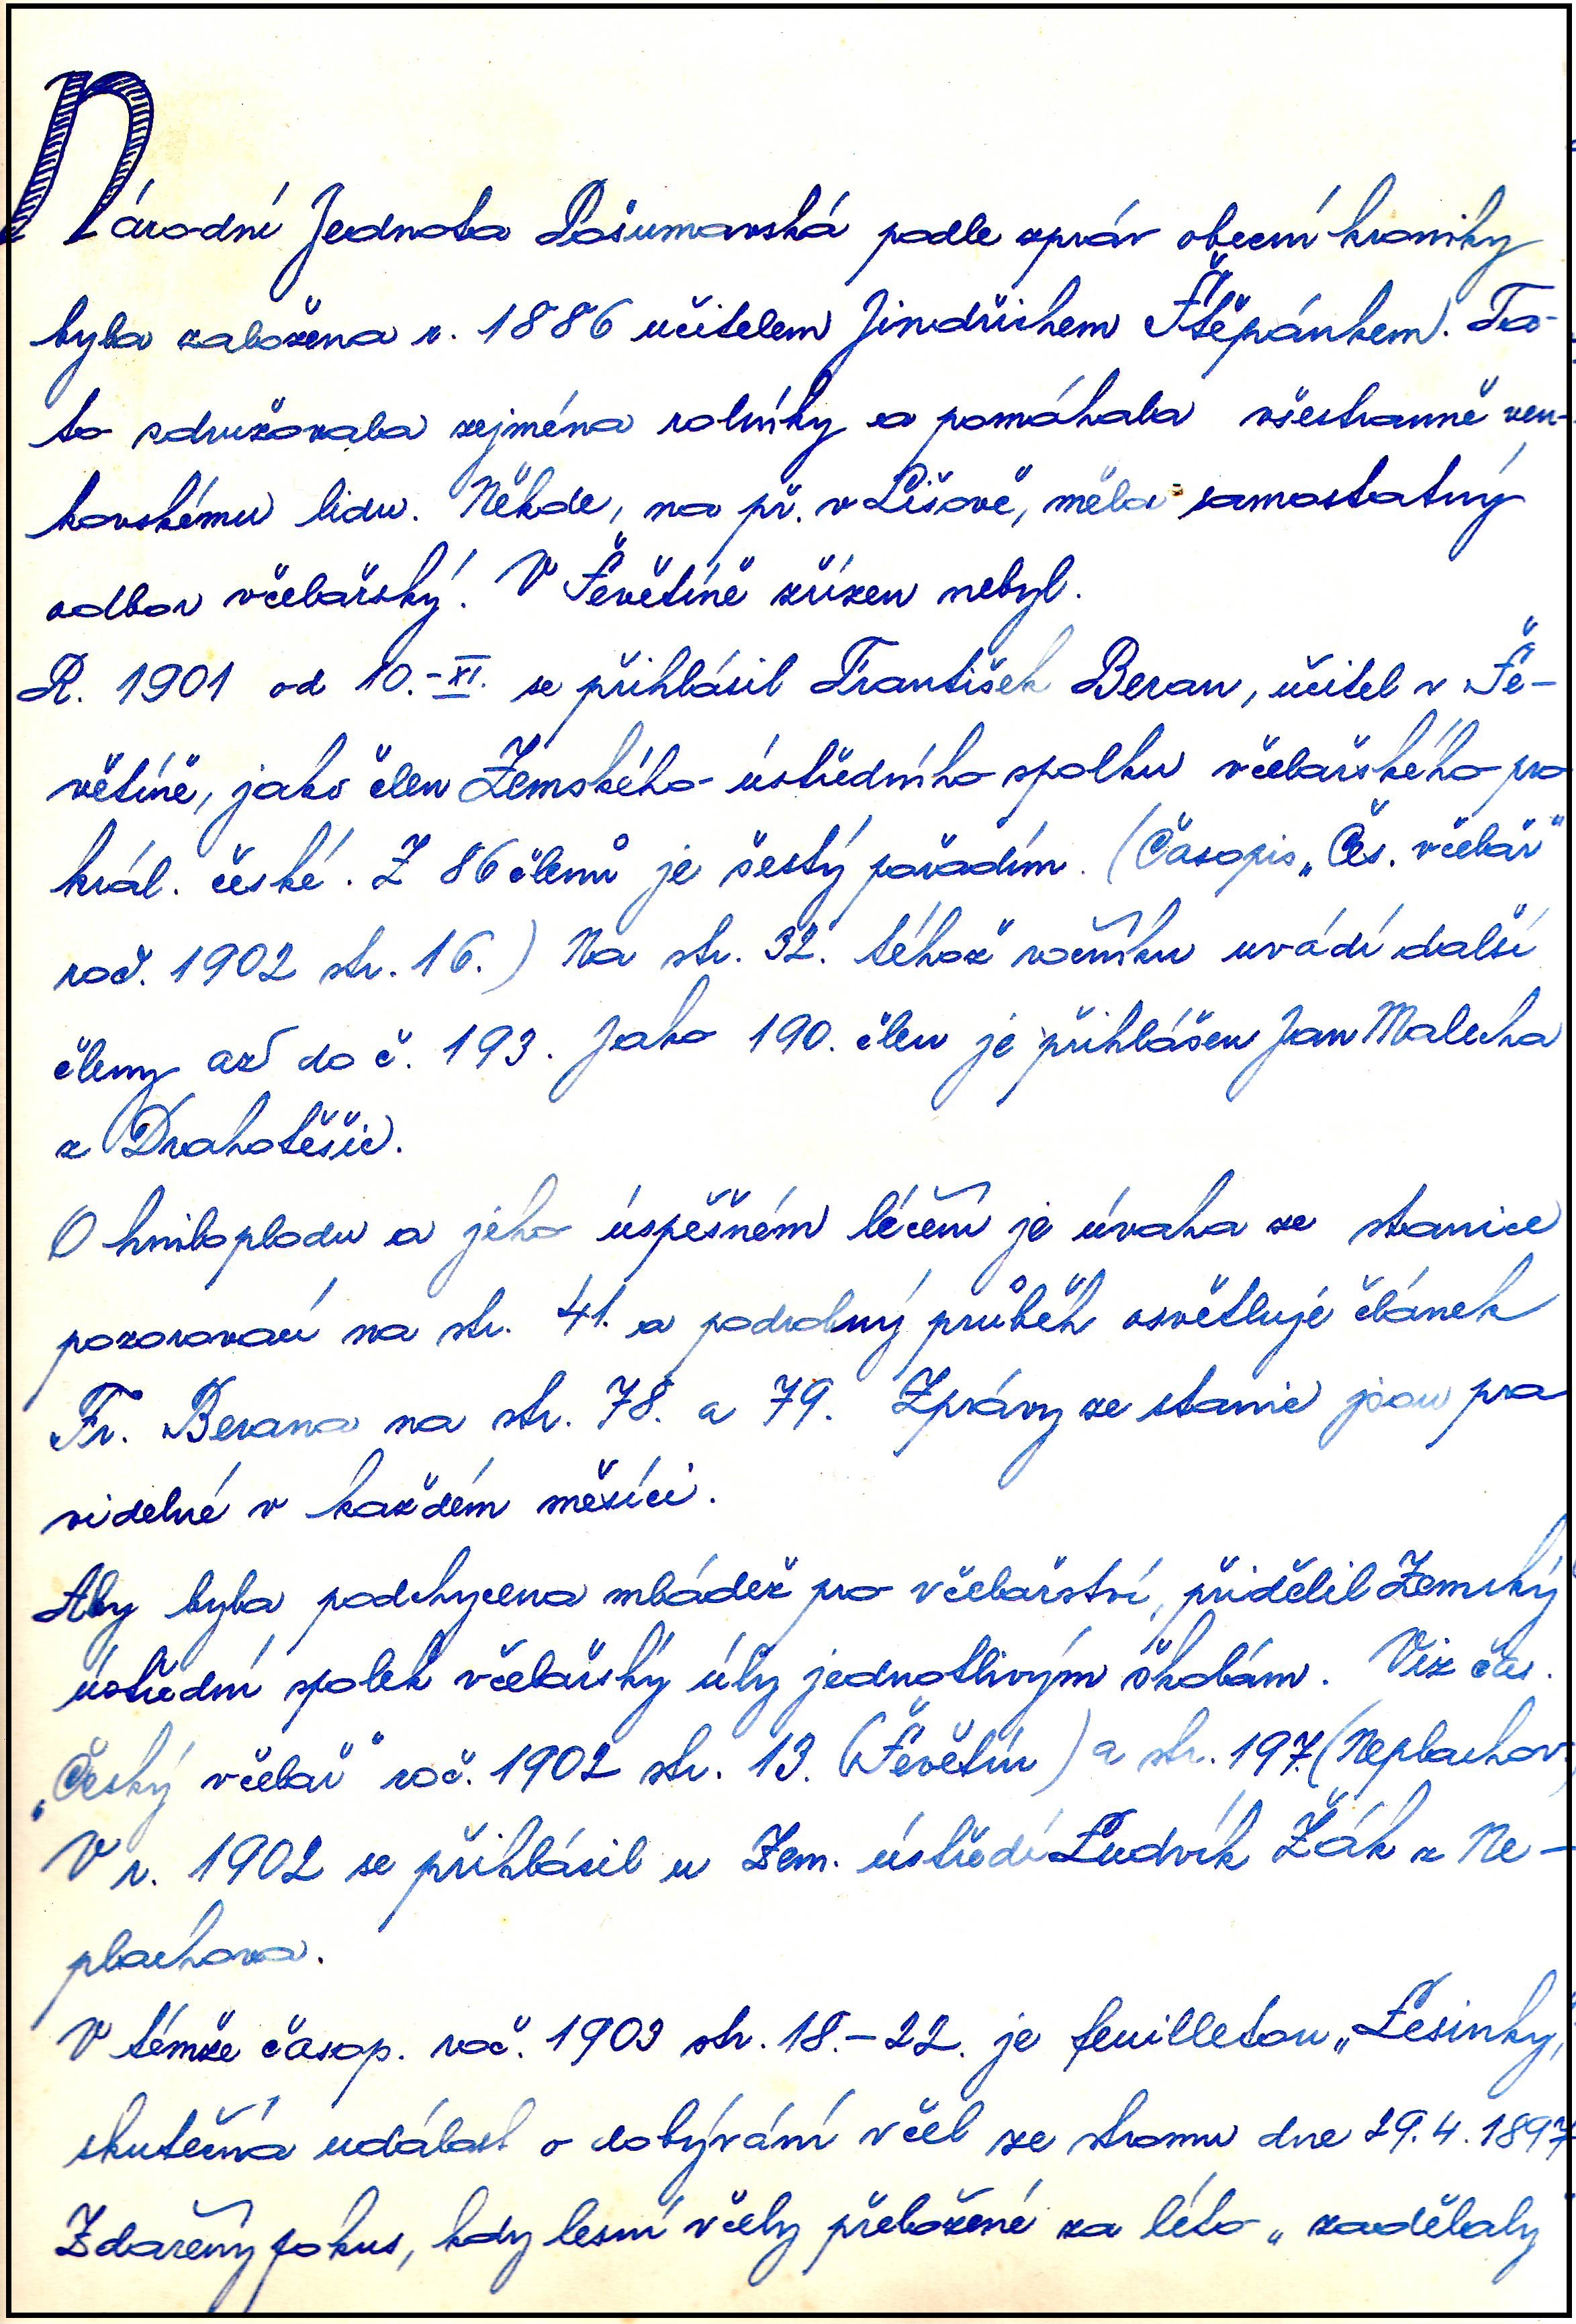 Národní Jednota Pošumavská podle zpráv obecní kroniky
byla založena r. 1886 učitelem Jindřichem Štěpánkem. Ta-
to sdružovala zejména rolníky a pomáhala všestranně ven-
kovskému lidu. Někde, na př. v Lišově, měla samostatný
odbor včelařský. V Ševětíně zřízen nebyl.
R. 1901 od 10.-XI. se přihlásil František Beran, učitel v Še-
větíně, jako člen Zemského ústředního spolku včelařského pro
král. české. Z 86 členů je šestý pořadím. (Časopis „Čes. včelař"
roč. 1902 str. 16.) Na str. 32. téhož ročníku uvádí další
členy až do č. 193. Jako 190. člen je přihlášen Jan Malecha
z Drahotěšic.
O hniloplodu a jeho úspěšném léčení je úvaha ze stanice
pozorovací na str. 41. a podrobný průběh osvětluje článek
Fr. Berana na str. 78. a 79. Zprávy ze stanic jsou pra
videlné v každém měsíci.
Aby byla podchycena mládež pro včelařství, přidělil Zemský
ústřední spolek včelařský úly jednotlivým školám. Viz čas.
„Český včelař" roč. 1902 str. 13. (Ševětín) a str. 197. (Neplachov)
V r. 1902 se přihlásil u Zem. ústředí Ludvík Žák z Ne-
plachova.
V témže časop. roč. 1903 str. 18.-22. je feuilleton „Lesinky,"
skutečná událost o dobývání včel ze stromu dne 29.4.1897
Zdařený pokus, kdy lesní včely přeložené za léto „zadělaly"